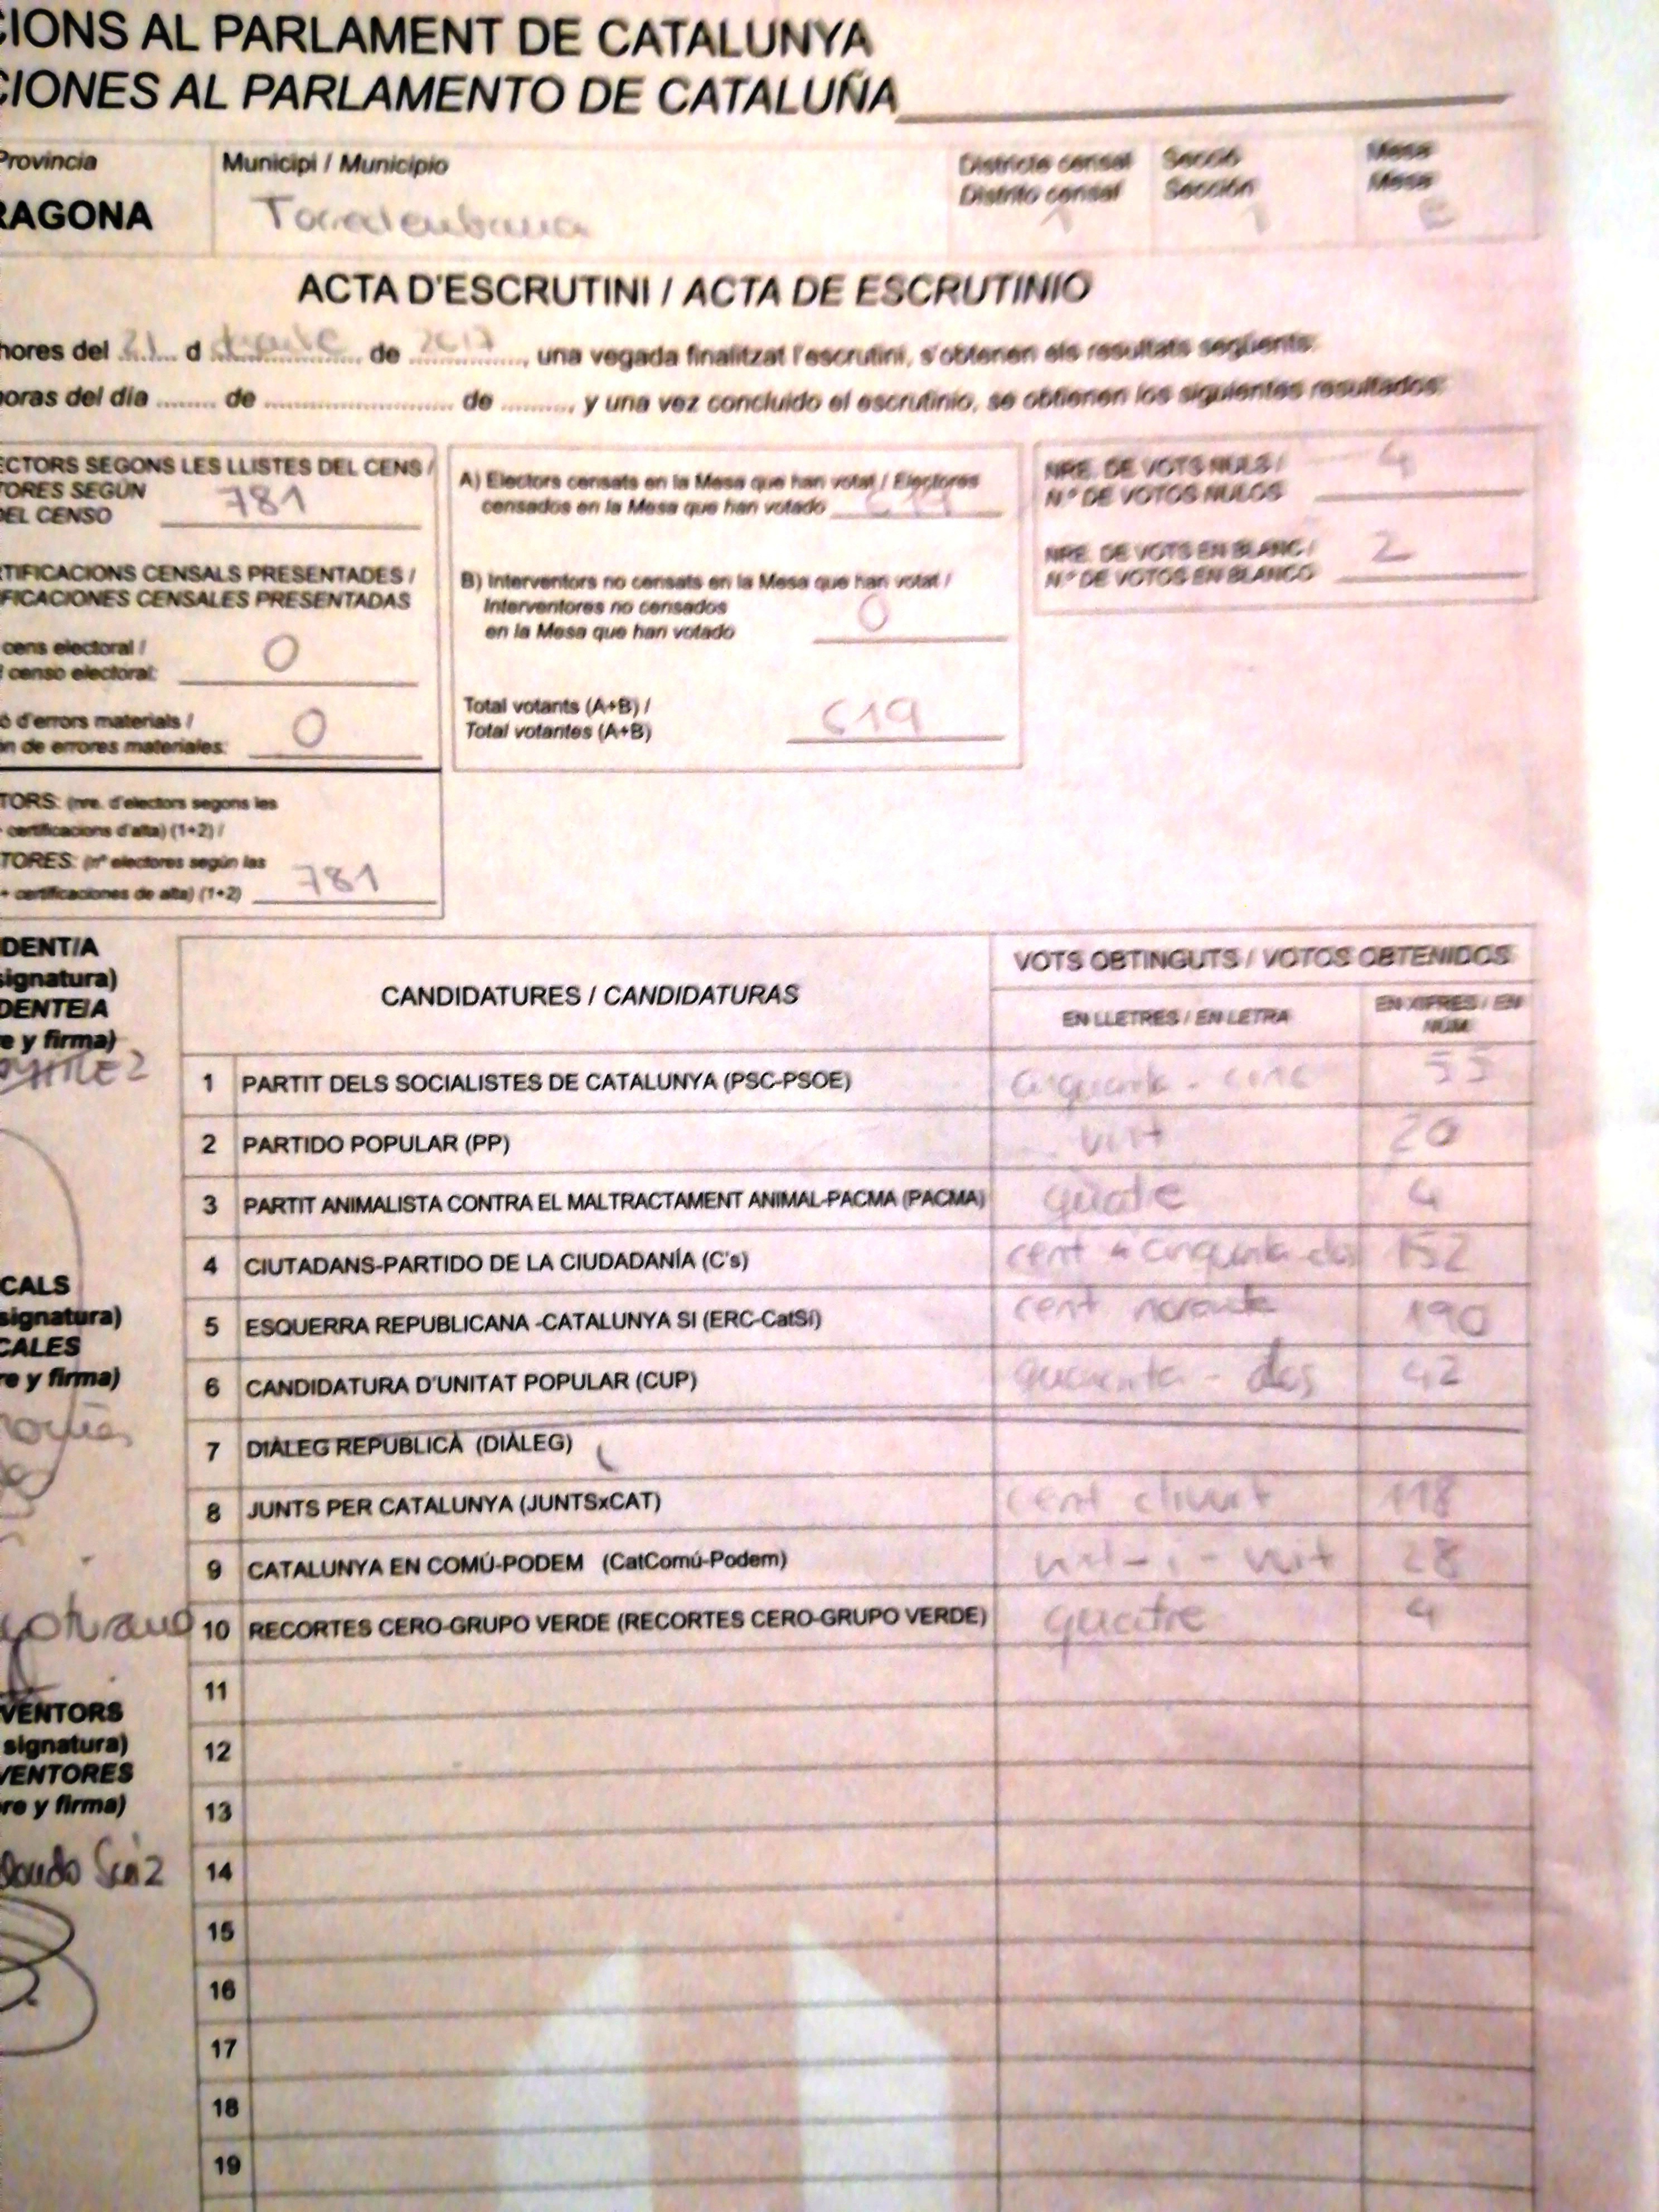 CIONS AL PARLAMENT DE CATALUNYA
CIONES AL PARLAMENTO DE CATALUÑA
Provincia
RAGONA
Municipi / Municipio
Torredembarra
Districte censal
Distrito censal
1
Secció
Sección
1
Mesa
Mesa
ACTA D'ESCRUTINI / ACTA DE ESCRUTINIO
hores del 21 d de 2017, una vegada finalitzat l'escrutini, s'obtenen els resultats següents:
horas del día ........ de .......................... de ........., y una vez concluido el escrutinio, se obtienen los siguientes resultados:
ECTORS SEGONS LES LLISTES DEL CENS /
TORES SEGÚN
DEL CENSO 781
TIFICACIONS CENSALS PRESENTADES /
FICACIONES CENSALES PRESENTADAS
cens electoral /
censo electoral: 0
ó d'errors materials /
ón de errores materiales: 0
TORS: (nre. d'electors segons les
+ certificacions d'alta) (1+2) /
TORES: (nº electores según las
+ certificaciones de alta) (1+2) 781
A) Electors censats en la Mesa que han votat / Electores
censados en la Mesa que han votado 619
B) Interventors no censats en la Mesa que han votat /
Interventores no censados
en la Mesa que han votado 0
Total votants (A+B) /
Total votantes (A+B) 619
NRE. DE VOTS NULS /
N.º DE VOTOS NULOS 4
NRE. DE VOTS EN BLANC /
N.º DE VOTOS EN BLANCO 2
DENT/A
signatura)
DENTE/A
e y firma)
CALS
signatura)
CALES
re y firma)
VENTORS
signatura)
VENTORES
re y firma)
CANDIDATURES / CANDIDATURAS
VOTS OBTINGUTS / VOTOS OBTENIDOS
EN LLETRES / EN LETRA
EN XIFRES / EN
NÚM.
1 PARTIT DELS SOCIALISTES DE CATALUNYA (PSC-PSOE) cinquanta - cinc 55
2 PARTIDO POPULAR (PP) vint 20
3 PARTIT ANIMALISTA CONTRA EL MALTRACTAMENT ANIMAL-PACMA (PACMA) quatre 4
4 CIUTADANS-PARTIDO DE LA CIUDADANÍA (C's) cent cinquanta dos 152
5 ESQUERRA REPUBLICANA -CATALUNYA SI (ERC-CatSí) cent noranta 190
6 CANDIDATURA D'UNITAT POPULAR (CUP) quaranta - dos 42
7 DIÀLEG REPUBLICÀ (DIÀLEG)
8 JUNTS PER CATALUNYA (JUNTSxCAT) cent divuit 118
9 CATALUNYA EN COMÚ-PODEM (CatComú-Podem) vint-i-vuit 28
10 RECORTES CERO-GRUPO VERDE (RECORTES CERO-GRUPO VERDE) quatre 4
11
12
13
14
15
16
17
18
19